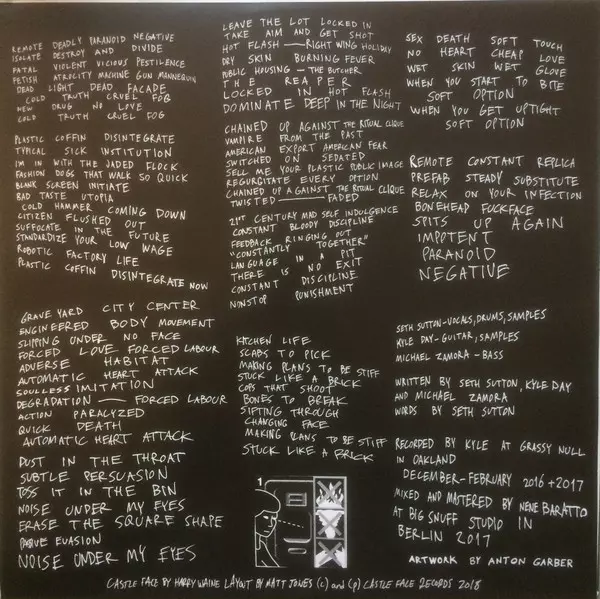 REMOTE DEADLY PARANOID NEGATIVE
ISOLATE DESTROY AND DIVIDE
FATAL VIOLENT VICIOUS PESTILENCE
FETISH ATROCITY MACHINE GUN MANNEQUIN
DEAD LIGHT DEAD FACADE
COLD TRUTH CRUEL FOG
NEW DRUG NO LOVE
COLD TRUTH CRUEL FOG
PLASTIC COFFIN DISINTEGRATE
TYPICAL SICK INSTITUTION
I'M IN WITH THE JADED FLOCK
FASHION DOGS THAT WALK SO QUICK
BLANK SCREEN INITIATE
BAD TASTE UTOPIA
COLD HAMMER COMING DOWN
CITIZEN FLUSHED OUT
SUFFOCATE IN THE FUTURE
STANDARDIZE YOUR LOW WAGE
ROBOTIC FACTORY LIFE
PLASTIC COFFIN DISINTEGRATE NOW
GRAVE YARD CITY CENTER
ENGINEERED BODY MOVEMENT
SLIPPING UNDER NO FACE
FORCED LOVE FORCED LABOUR
ADVERSE HABITAT
AUTOMATIC HEART ATTACK
SOULLESS IMITATION
DEGRADATION — FORCED LABOUR
ACTION PARALYZED
QUICK DEATH
AUTOMATIC HEART ATTACK
DUST IN THE THROAT
SUBTLE PERSUASION
TOSS IT IN THE BIN
NOISE UNDER MY EYES
ERASE THE SQUARE SHAPE
PARQUE EVASION
NOISE UNDER MY EYES
LEAVE THE LOT LOCKED IN
TAKE AIM AND GET SHOT
HOT FLASH — RIGHT WING HOLIDAY
DRY SKIN BURNING FEVER
PUBLIC HOUSING — THE BUTCHER
THE REAPER
LOCKED IN HOT FLASH
DOMINATE DEEP IN THE NIGHT
CHAINED UP AGAINST THE RITUAL CLIQUE
VAMPIRE FROM THE PAST
AMERICAN EXPORT AMERICAN FEAR
SWITCHED ON SEDATED
SELL ME YOUR PLASTIC PUBLIC IMAGE
REGURGITATE EVERY OPTION
CHAINED UP AGAINST THE RITUAL CLIQUE
TWISTED — FADED
21ST CENTURY MAD SELF INDULGENCE
CONSTANT BLOODY DISCIPLINE
FEEDBACK RINGING OUT
"CONSTANTLY TOGETHER"
LANGUAGE IN A PIT
THERE IS NO EXIT
CONSTANT DISCIPLINE
NONSTOP PUNISHMENT
KITCHEN LIFE
SCABS TO PICK
MAKING PLANS TO BE STIFF
STUCK LIKE A BRICK
COPS THAT SHOOT
BONES TO BREAK
SIFTING THROUGH
CHANGING FACE
MAKING PLANS TO BE STIFF
STUCK LIKE A BRICK
1
SEX DEATH SOFT TOUCH
NO HEART CHEAP LOVE
WET SKIN WET GLOVE
WHEN YOU START TO BITE
SOFT OPTION
WHEN YOU GET UPTIGHT
SOFT OPTION
REMOTE CONSTANT REPLICA
PREFAB STEADY SUBSTITUTE
RELAX ON YOUR INFECTION
BONEHEAD FUCKFACE
SPITS UP AGAIN
IMPOTENT
PARANOID
NEGATIVE
SETH SUTTON-VOCALS, DRUMS, SAMPLES
KYLE DAY-GUITAR, SAMPLES
MICHAEL ZAMORA-BASS
WRITTEN BY SETH SUTTON, KYLE DAY
AND MICHAEL ZAMORA
WORDS BY SETH SUTTON
RECORDED BY KYLE AT GRASSY NULL
IN OAKLAND
DECEMBER-FEBRUARY 2016+2017
MIXED AND MASTERED BY NENE BARATTO
AT BIG SNUFF STUDIO IN
BERLIN 2017
ARTWORK BY ANTON GARBER
CASTLE FACE BY HARRY WAINE LAYOUT BY MATT JONES (C) and (P) CASTLE FACE RECORDS 2018